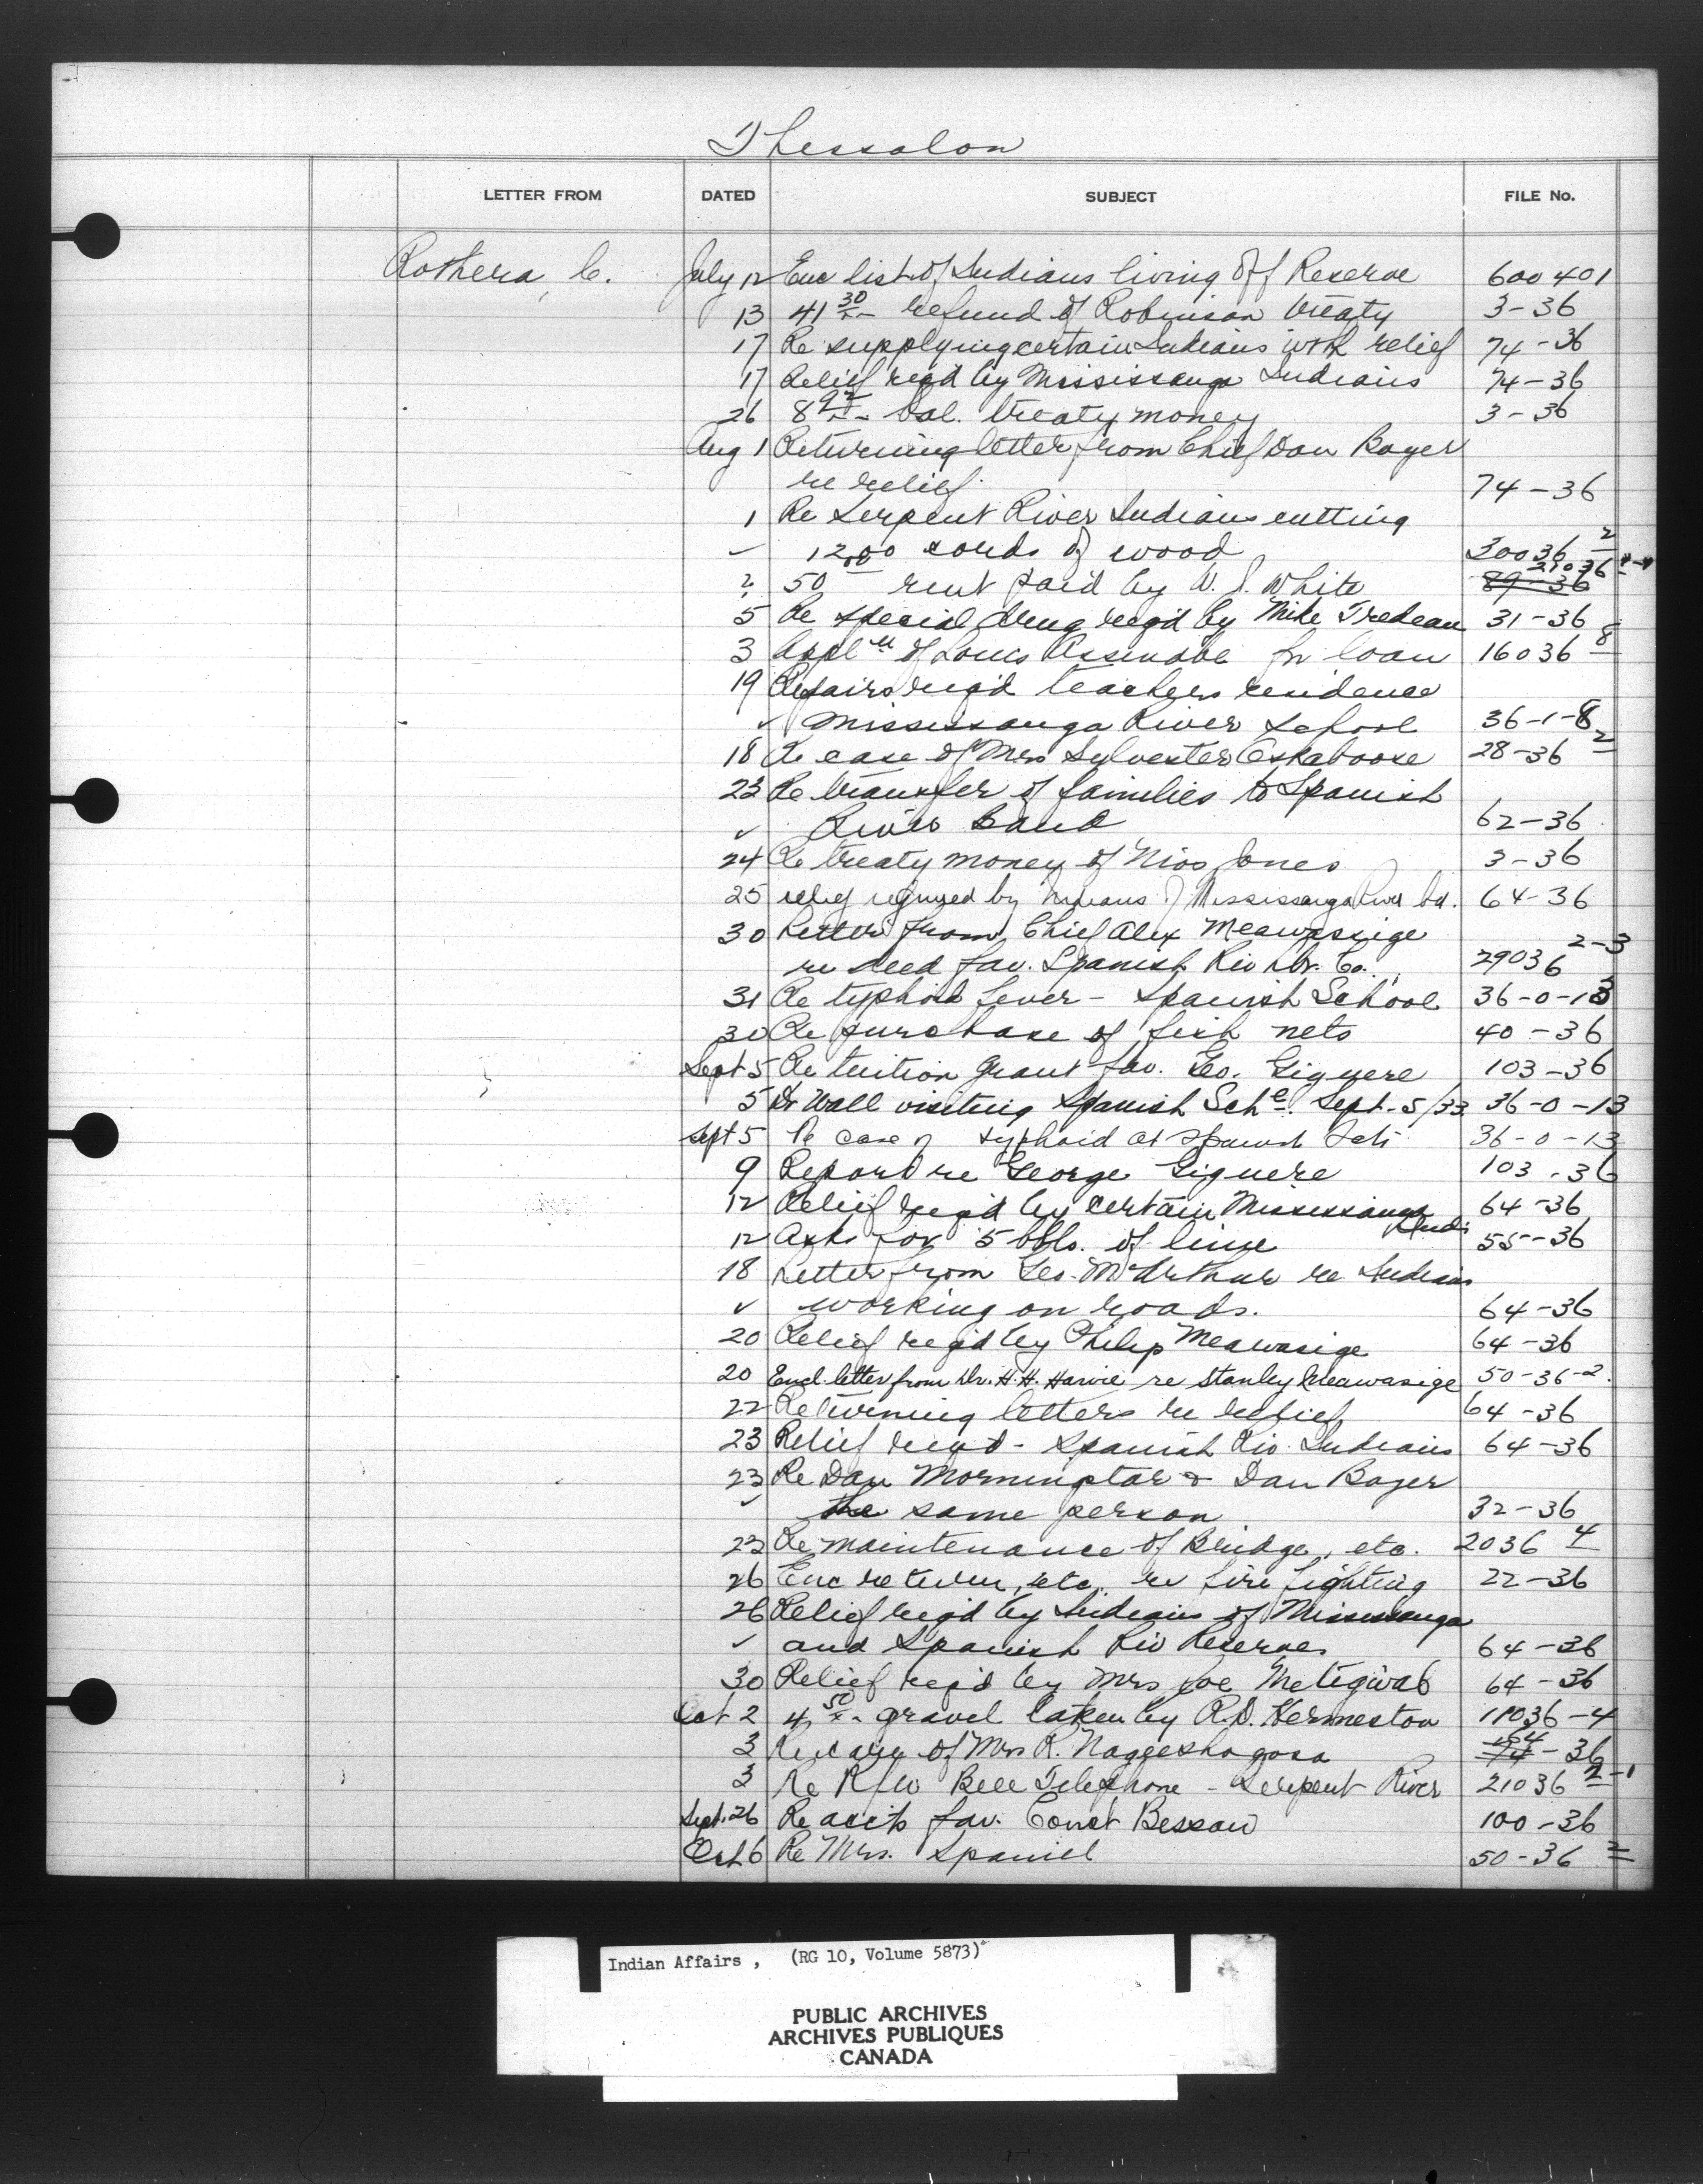 Thessalon
LETTER FROM DATED SUBJECT FILE No.
Rothera, C. July 12 Enc list of Indians living off Reserve 600401
13 41 30 refund of Robinson treaty 3-36
17 Re supplying certain Indians with relief 74-36
17 Relief reqd by Mississauga Indians 74-36
26 8 bal. treaty money 3-36
Aug 1 Returning letter from Chief Dan Boyer
re relief 74-36
1 Re Serpent River Indians cutting
✓ 1200 cords of wood 30036 2
2 50 00 rent paid by W. J. White 89-36 21036
5 Re special drug reqd by Mike Tredeau 31-36
3 Appl'n of Louis for loan 16036 8
19 Repairs req'd teachers residence
✓ Mississauga River School 36-1-8
18 Re case of Mrs Sylvester Eskaboose 28-36 2
23 Re transfer of families to Spanish
✓ River Band 62-36
24 Re treaty money of Jones 3-36
25 relief required by Indians of Mississauga River bd. 64-36
30 Letter from Chief Alex Meawassige
re deed fav. Spanish Riv Lbr. Co. 29036 2-3
31 Re typhoid fever - Spanish School 36-0-13
30 Re purchase of fish nets 40-36
Sept 5 Re tuition grant fav. Geo. Giguere 103-36
5 Dr Wall visiting Spanish Schl. Sept. 5/33 36-0-13
Sept 5 Re case of typhoid at Spanish Sch 36-0-13
9 Report re George Giguere 103-36
12 Relief req'd by certain Mississauga Inds 64-36
12 Asks for 5 bbls. of lime 55-36
18 Letter from Geo. McArthur re Indians
✓ working on roads. 64-36
20 Relief req'd by Philip Meawasige 64-36
20 Encl. letter from Dr. H.H. Harvie re Stanley Meawasige 50-36-2.
22 Returning letters re relief 64-36
23 Relief reqd - Spanish Riv. Indians 64-36
23 Re Dan Morningstar & Dan Boyer
✓ the same person 32-36
23 Re maintenance of Bridge, etc. 2036 4
26 Enc return, etc. re fire fighting 22-36
26 Relief req'd by Indians of Mississauga
✓ and Spanish Riv Reserves 64-36
30 Relief req'd by Mrs Joe Metigwab 64-36
Oct 2 4 50 gravel taken by R.D. Hermeston 11036-4
3 Re care of Mrs R. Naggeshagosa 74-36
3 Re R/W Bell Telephone - Serpent River 21036 2-1
Sept. 26 Re accts fav. Const Bessau 100-36
Oct 6 Re Mrs. Spaniel 50-36 2
Indian Affairs , (RG 10, Volume 5873)
PUBLIC ARCHIVES
ARCHIVES PUBLIQUES
CANADA